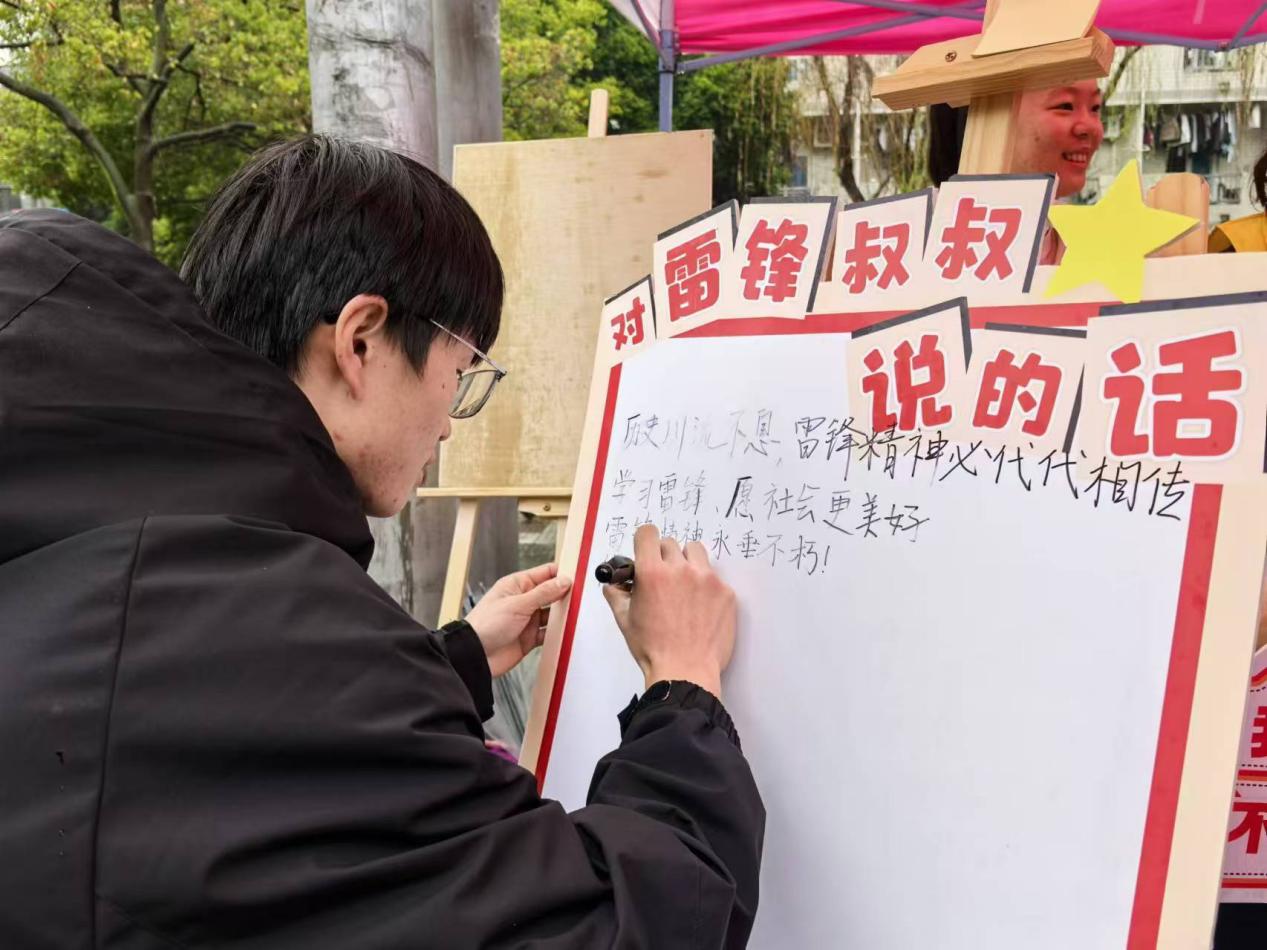 对雷锋叔叔
说的话
历史川流不息,雷锋精神必代代相传
学习雷锋、愿社会更美好
雷锋精神永垂不朽!